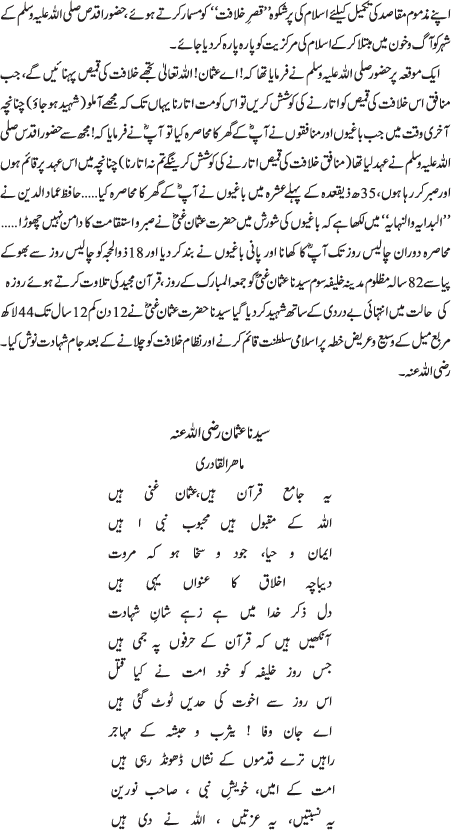 اپنے مذموم مقاصد کی تکمیل کیلئے اسلام کی پرشکوہ ”قصرِ خلافت“ کو مسمار کرتے ہوئے، حضور اقدس صلی اللہ علیہ وسلم کے
شہر کو آگ وخون میں مبتلا کرکے اسلام کی مرکزیت کو پارہ پارہ کر دیا جائے۔
ایک موقعہ پر حضور صلی اللہ علیہ وسلم نے فرمایا تھا کہ! اے عثمان! اللہ تعالیٰ تجھے خلافت کی قمیص پہنائیں گے، جب
منافق اس خلافت کی قمیص کو اتارنے کی کوشش کریں تو اس کو مت اتارنا یہاں تک کہ مجھے آملو (شہید ہو جاؤ) چنانچہ
آخری وقت میں جب باغیوں اور منافقوں نے آپؓ کے گھر کا محاصرہ کیا تو آپؓ نے فرمایا کہ! مجھ سے حضور اقدس صلی
اللہ علیہ وسلم نے عہد لیا تھا (منافق خلافت کی قمیص اتارنے کی کوشش کرینگے تم نہ اتارنا) چنانچہ میں اس عہد پر قائم ہوں
اور صبر کر رہا ہوں، 35ھ ذیقعدہ کے پہلے عشرہ میں باغیوں نے آپؓ کے گھر کا محاصرہ کیا.....حافظ عماد الدین نے
”البدایہ والنہایہ“ میں لکھا ہے کہ باغیوں کی شورش میں حضرت عثمان غنیؓ نے صبر و استقامت کا دامن نہیں چھوڑا.....
محاصرہ دوران چالیس روز تک آپؓ کا کھانا اور پانی باغیوں نے بند کر دیا اور 18 ذوالحجہ کو چالیس روز سے بھوکے
پیاسے 82 سالہ مظلوم مدینہ خلیفہ سوم سیدنا عثمان غنیؓ کو جمعۃ المبارک کے روز، قرآن مجید کی تلاوت کرتے ہوئے روزہ
کی حالت میں انتہائی بے دردی کے ساتھ شہید کر دیا گیا سیدنا حضرت عثمان غنیؓ نے 12 دن کم 12 سال تک 44 لاکھ
مربع میل کے وسیع وعریض خطہ پر اسلامی سلطنت قائم کرنے اور نظام خلافت کو چلانے کے بعد جام شہادت نوش کیا۔
رضی اللہ عنہ۔
سیدنا عثمان رضی اللہ عنہ
ماہر القادری
یہ جامع قرآن ہیں، عثمان غنی ہیں
اللہ کے مقبول ہیں محبوب نبی ا ہیں
ایمان و حیا، جود و سخا ہو کہ مروت
دیباچہ اخلاق کا عنواں یہی ہیں
دل ذکر خدا میں ہے زہے شانِ شہادت
آنکھیں ہیں کہ قرآن کے حرفوں پہ جمی ہیں
جس روز خلیفہ کو خود امت نے کیا قتل
اس روز سے اخوت کی حدیں ٹوٹ گئی ہیں
اے جان وفا ! یثرب و حبشہ کے مہاجر
راہیں ترے قدموں کے نشاں ڈھونڈ رہی ہیں
امت کے امیں، خویشِ نبی ، صاحب نورین
یہ نسبتیں، یہ عزتیں ، اللہ نے دی ہیں